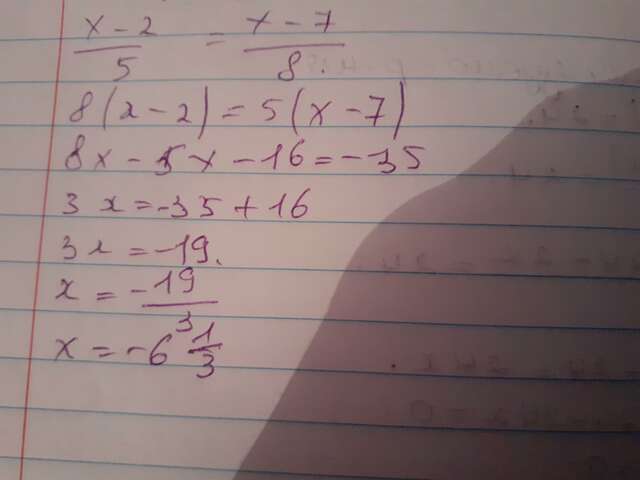 x-2/5 = x-7/8.
8(x-2)=5(x-7)
8x-5x-16=-35
3x=-35+16
3x=-19.
x=-19/3
x=-6 1/3